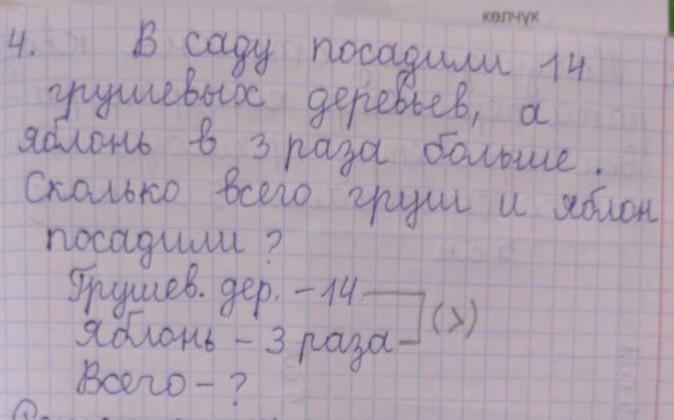 көлчүк
4. В саду посадили 14
грушевых деревьев, а
яблонь в 3 раза больше.
Сколько всего груш и яблон
посадили?
Грушев. дер. – 14
Яблонь – 3 раза (>)
Всего – ?